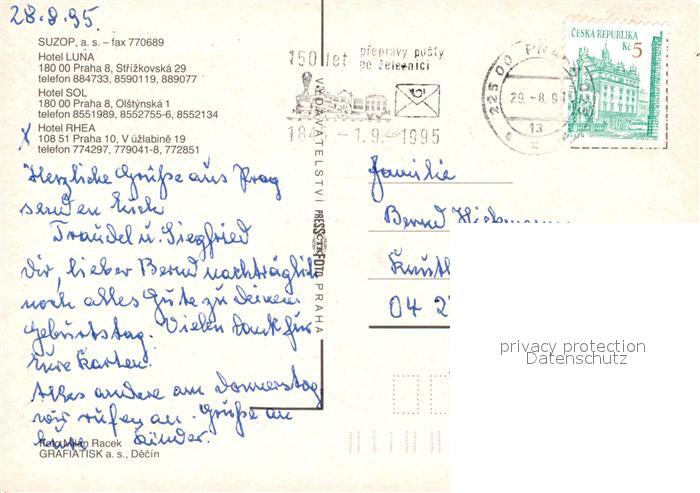 28.8.95.
SUZOP, a. s. – fax 770689
Hotel LUNA
180 00 Praha 8, Střížkovská 29
telefon 884733, 8590119, 889077
Hotel SOL
180 00 Praha 8, Olštýnská 1
telefon 8551989, 8552755-6, 8552134
x Hotel RHEA
108 51 Praha 10, V úžlabině 19
telefon 774297, 779041-8, 772851
Herzliche Grüße aus Prag
senden Euch
Traudel u. Siegfried
Dir, lieber Bernd nachträglich
noch alles Gute zu Deinem
Geburtstag. Vielen Dank für
Eure Karten.
Alles andere am Donnerstag,
wir rufen an. Grüße an
Kinder.
Foto Milan Racek
GRAFIATISK a. s., Děčín
VYDAVATELSTVÍ PRESSFOTO PRAHA
150 let přepravy pošty
po železnici
1.9.1995
225 00 PRAHA
29.-8.9
13
ČESKÁ REPUBLIKA
Kč 5
Familie
Bernd
04 2
privacy protection
Datenschutz